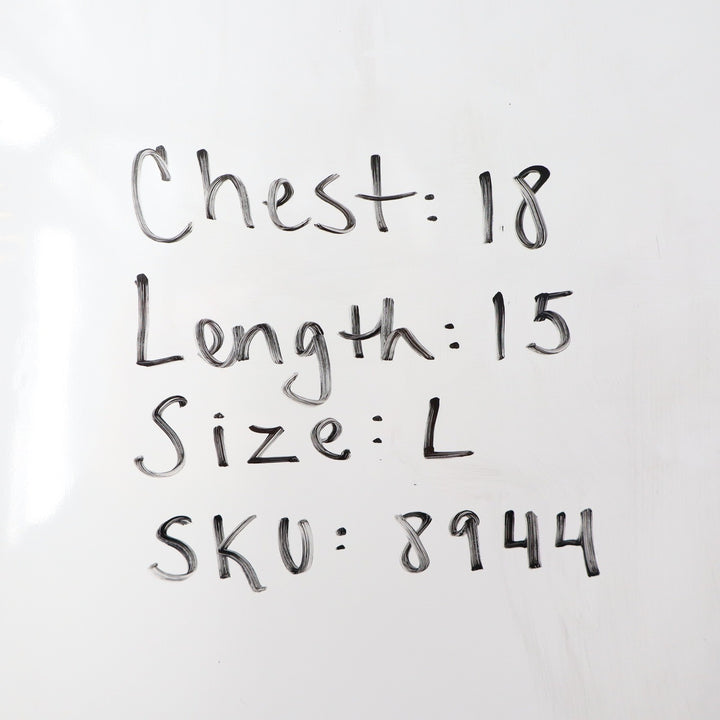 Chest: 18
Length: 15
Size: L
SKU: 8944